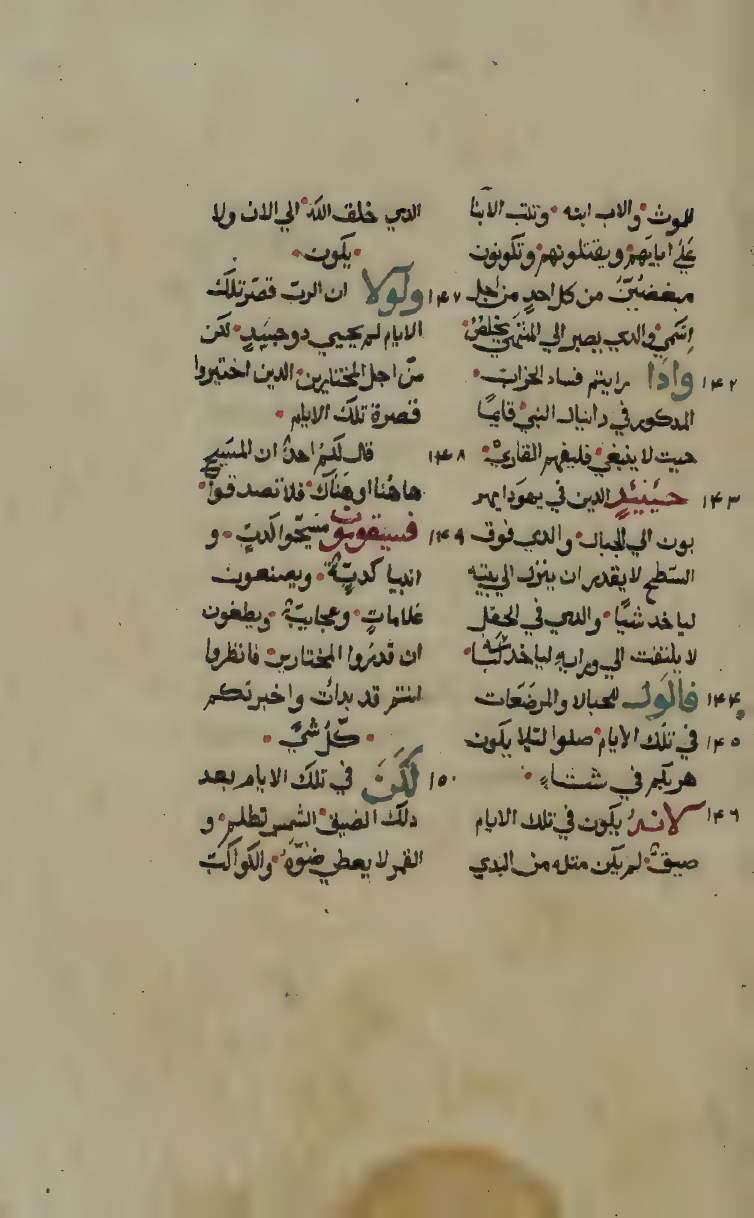 للموت والاب ابنه وتثب الابنا
علي ابايهم ويقتلونهم وتكونون
مبغضين من كل احدٍ من اجل
اسمي والدي يصبر الي المنتهي يخلص
١٤٢ واذا رايتم فساد الخراب
المدكور في دانيال النبي قايمًا
حيت لا ينبغي فليفهم القاري
١٤٣ حينيدٍ الدين في يهودا يهر
بون الي الجبال والدي فوق
السَطح لا يقدر ان ينزل الي بيته
لياخد شيًا والدي في الحقل
لا يلتفت الي ورايه لياخد
١٤٤ فالويل للحبالا والمرضَعات
١٤٥ في تلك الايام صلوا لئلا يكون
هربكم في شتاءٍ
١٤٦ لانه يكون في تلك الايام
ضيق لم يكن متله من البدي
الدي خلف الله الي الان ولا
يكون
١٤٧ ولولا ان الرب قصّر تلك
الايام لم يحيي دو جسَدٍ لكن
من اجل المختارين الدين اختيروا
قصرة تلك الايام
١٤٨ قال لكم احدٌ ان المسَيح
هاهُنا او هَناك فلا تصدقوا
١٤٩ فسيقومون مسيحوا كدبٍ و
انبيا كدبَةٌ ويصنعون
علاماتٍ وعجايبٌ ويطغون
ان قدرُوا المختارين فانظروا
انتم قد بدات واخبرتكم
كل شي
١٥٠ لكن في تلك الايام بعد
دلك الضيق الشمس تظلم و
القمر لا يعطي ضوّه والكواكب